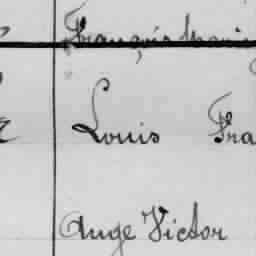 François Marie
Louis Fra
Ange Victor